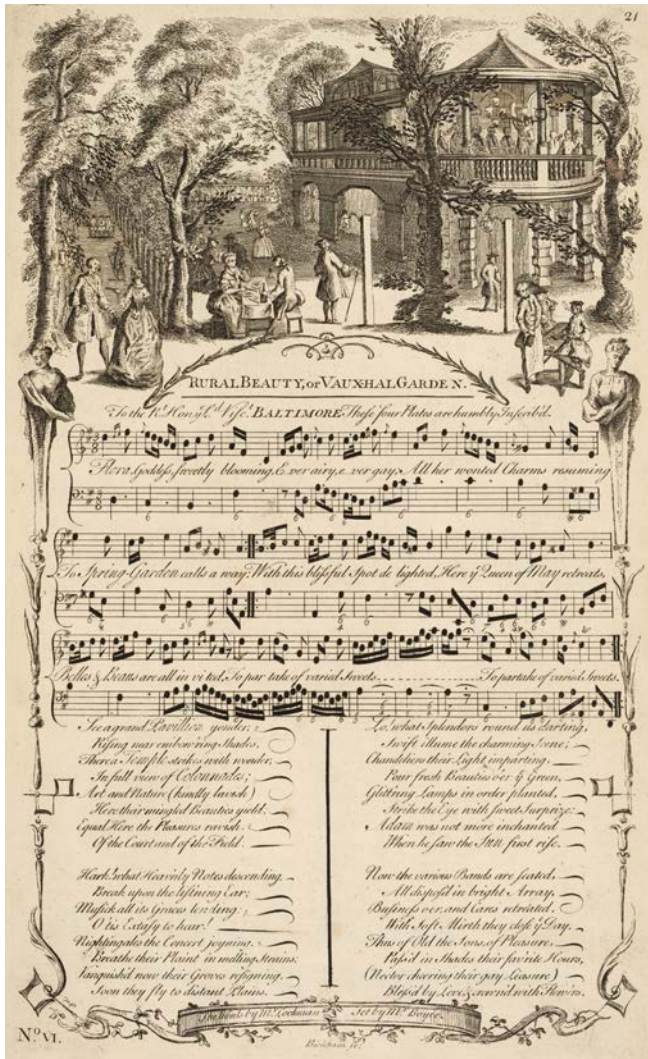 21
RURAL BEAUTY, or VAUXHAL GARDEN.
To the Rt. Hon. ye Ld. Visct. BALTIMORE These four Plates are humbly Inscrib'd.
Flora, Goddess, sweetly blooming, E ver airy, e ver gay; All her wonted Charms resuming
To Spring-Garden calls a way; With this blissful Spot de lighted, Here ye Queen of May retreats,
Belles & Beaus are all in vi ted, To par take of varied Sweets To partake of varied Sweets.
See a grand Pavillion yonder,
Rising near embow'ring Shades,
There a Temple strikes with wonder,
In full view of Colonnades;
Art and Nature (kindly lavish)
Here their mingled Beauties yield,
Equal Here the Pleasures ravish
Of the Court and of the Field.
Hark! what Heavenly Notes descending
Break upon the list'ning Ear;
Musick all its Graces lending
O 'tis Extasy to hear!
Nightingales the Concert joyning,
Breathe their Plaint in melting strains;
Vanquish'd now their Groves resigning,
Soon they fly to distant Plains.
Lo, what Splendors round us darting,
Swift illume the charming Scene;
Chandeliers their Light imparting,
Pour fresh Beauties o'er ye Green,
Glitt'ring Lamps in order planted,
Strike the Eye with sweet Surprize;
Adam was not more inchanted
When he saw the Sun first rise.
Now the various Bands are seated,
All dispos'd in bright Array,
Business o'er, and Cares retreated,
With Soft Mirth they close ye Day.
Thus of Old the Sons of Pleasure,
Pass'd in Shades their fav'rite Hours,
(Nector cheering their gay Leasure)
Bless'd by Love, & crown'd with Flow'rs.
The Words by Mr. Lockman Set by Mr. Boyce.
No. VI.
Bickham